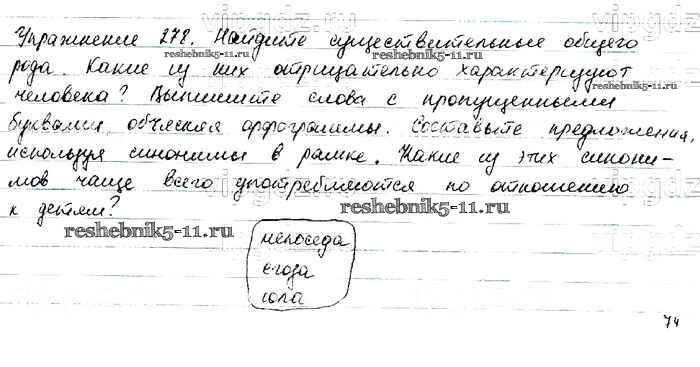 Упражнение 278. Найдите существительные общего
reshebnik5-11.ru
рода. Какие из них отрицательно характеризуют
reshebnik5-11.ru
человека? Выпишите слова с пропущенными
буквами, объясняя орфограммы. Составьте предложения,
используя синонимы в рамке. Какие из этих синони-
мов чаще всего употребляются по отношению
reshebnik5-11.ru
к детям?
reshebnik5-11.ru
непоседа
егоза
юла
74